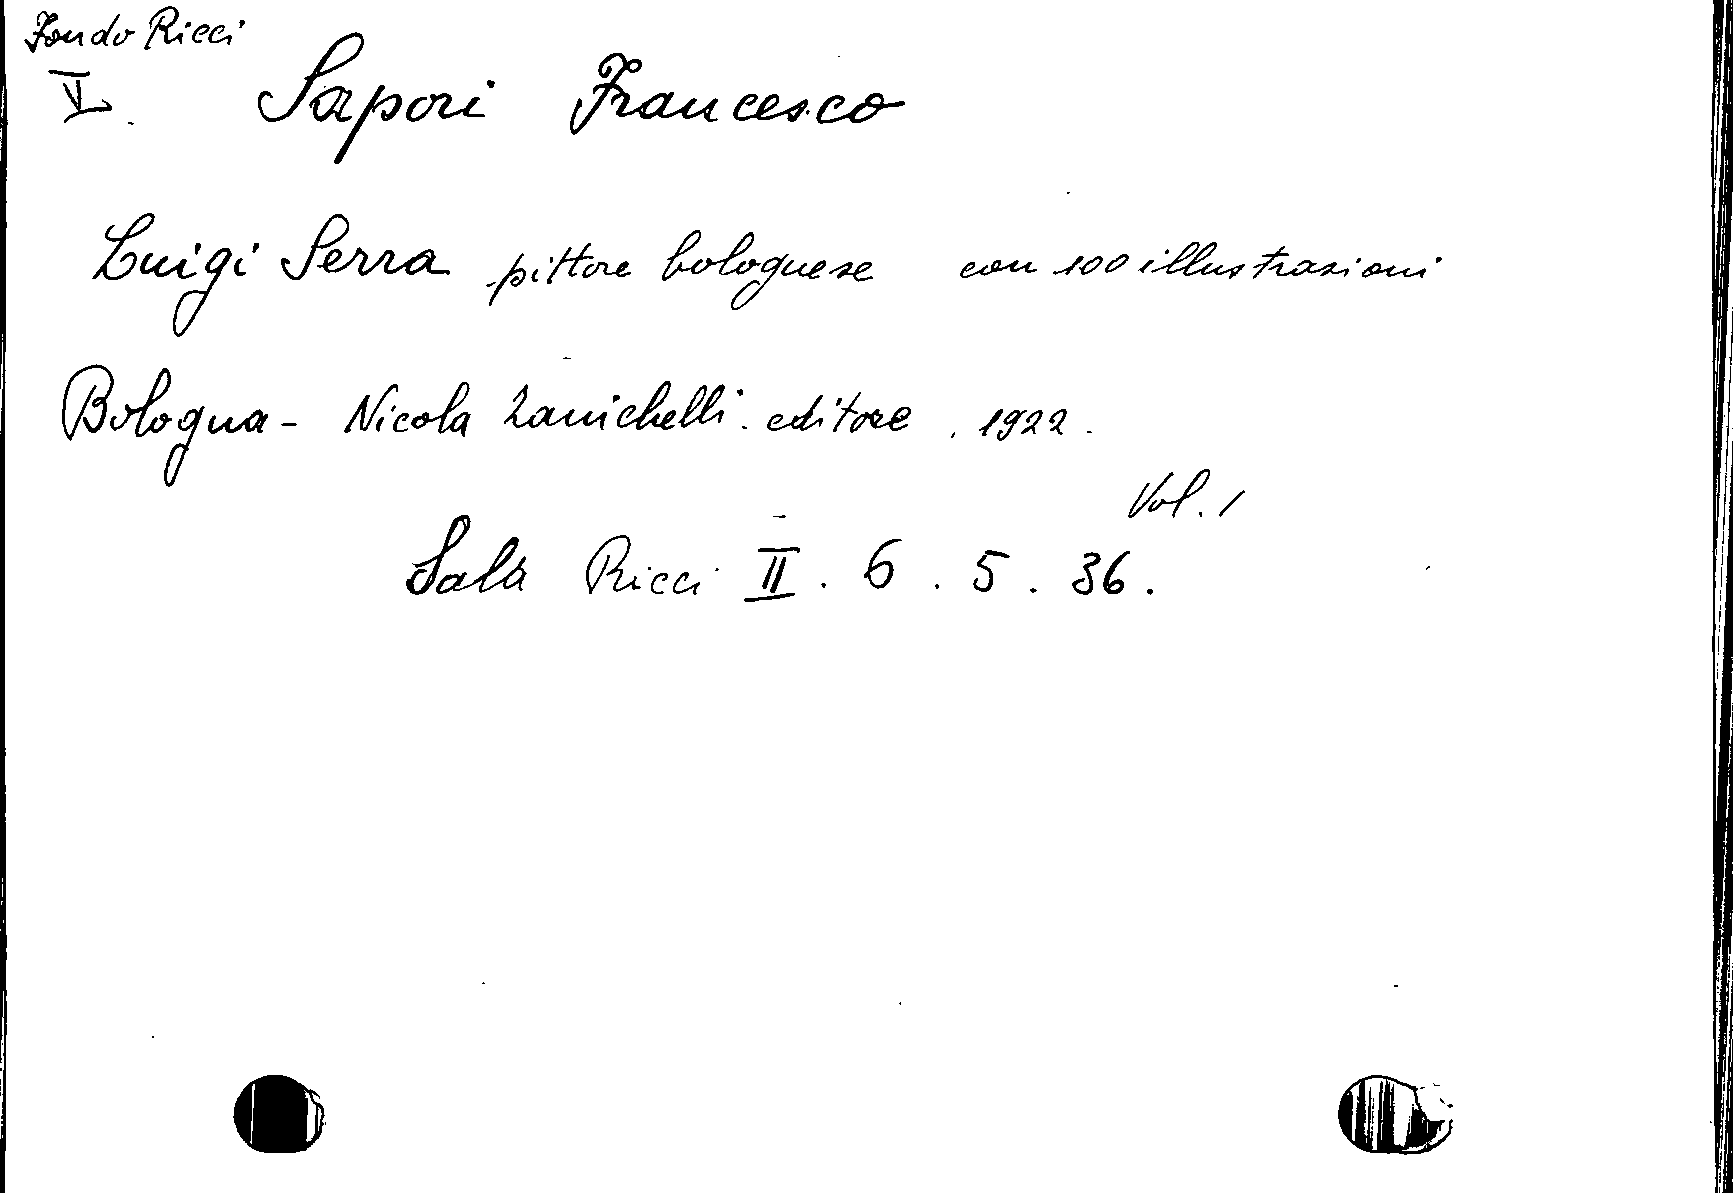 Fondo Ricci
V. Sapori Francesco
Luigi Serra pittore bolognese con 100 illustrazioni
Bologna - Nicola Zanichelli. editore. 1922.
Vol. 1
Sala Ricci II. 6. 5. 36.